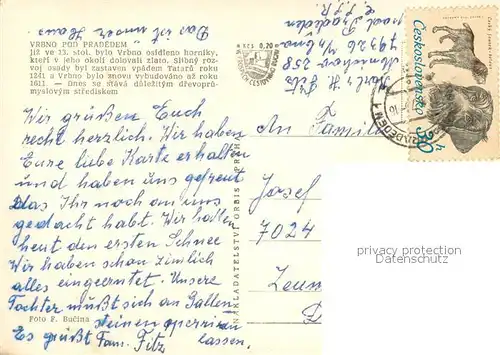 Das ist unser Haus
VRBNO POD PRADĚDEM
Již ve 13. stol. bylo Vrbno osídleno horníky,
kteří v jeho okolí dolovali zlato. Slibný roz-
voj osady byl zastaven vpádem Tatarů roku
1241 a Vrbno bylo znovu vybudováno až roku
1611. — dnes se stává důležitým dřevoprů-
myslovým střediskem
Wir grüßen Euch
recht herzlich. Wir haben
Eure liebe Karte erhalten
und haben uns gefreut
das Ihr noch an uns
gedacht habt. Wir hatten
heut den ersten Schnee
Wir haben schon ziemlich
alles eingeerntet. Unsere
Tochter mußt sich an Gallen
steinen operieren
lassen.
Es grüßt Fam. Fitz
Foto F. Bučina
NAKLADATELSTVÍ ORBIS PRAHA
0,70
Mnichov 238
79326
Československo
30 h
An Familie
Josef
7024
privacy protection
Datenschutz